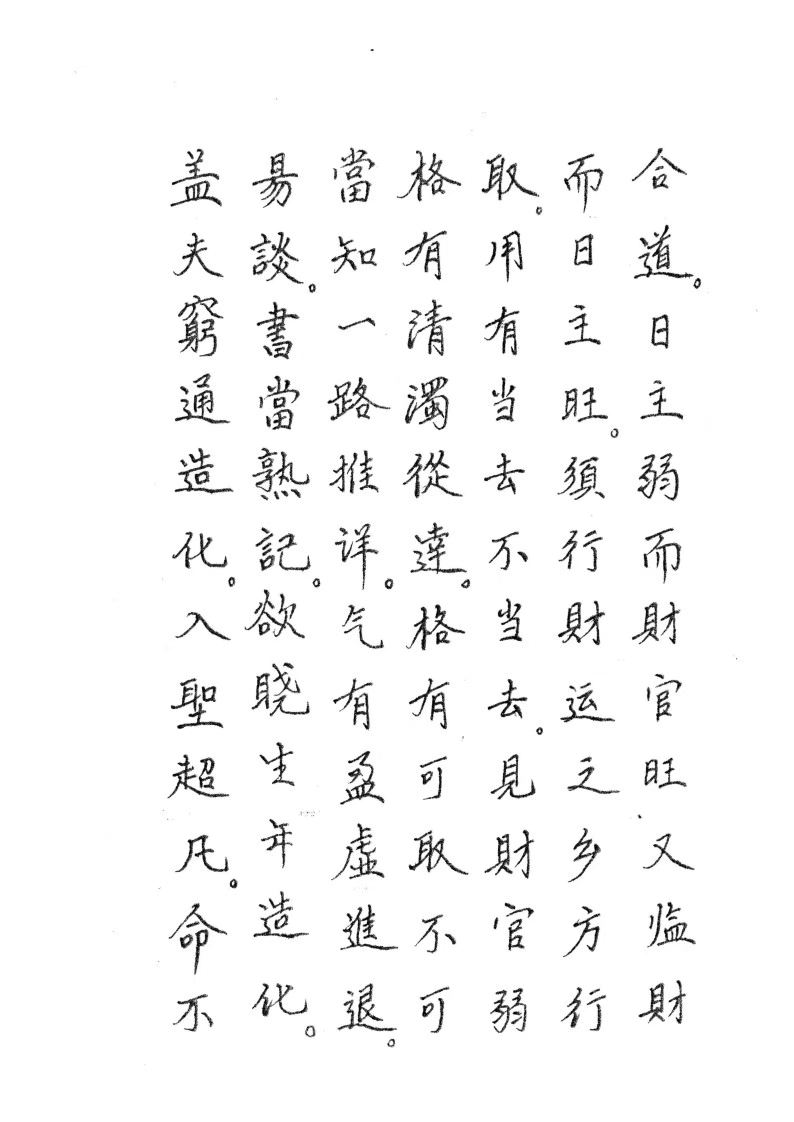 合道。日主弱而財官旺又临財
而日主旺。須行財运之乡方行
取。用有当去不当去。見財官弱
格有清濁從達。格有可取不可
當知一路推详。气有盈虚進退。
易談。書當熟記。欲曉生年造化。
盖夫窮通造化。入聖超凡。命不